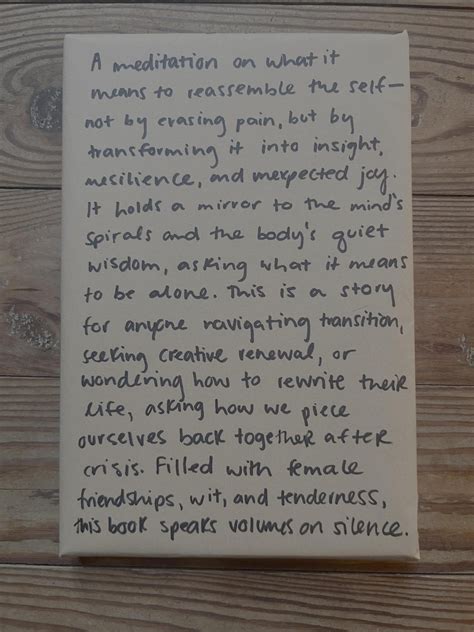 A meditation on what it
means to reassemble the self—
not by erasing pain, but by
transforming it into insight,
resilience, and unexpected joy.
It holds a mirror to the mind's
spirals and the body's quiet
wisdom, asking what it means
to be alone. This is a story
for anyone navigating transition,
seeking creative renewal, or
wondering how to rewrite their
life, asking how we piece
ourselves back together after
crisis. Filled with female
friendships, wit, and tenderness,
this book speaks volumes on silence.